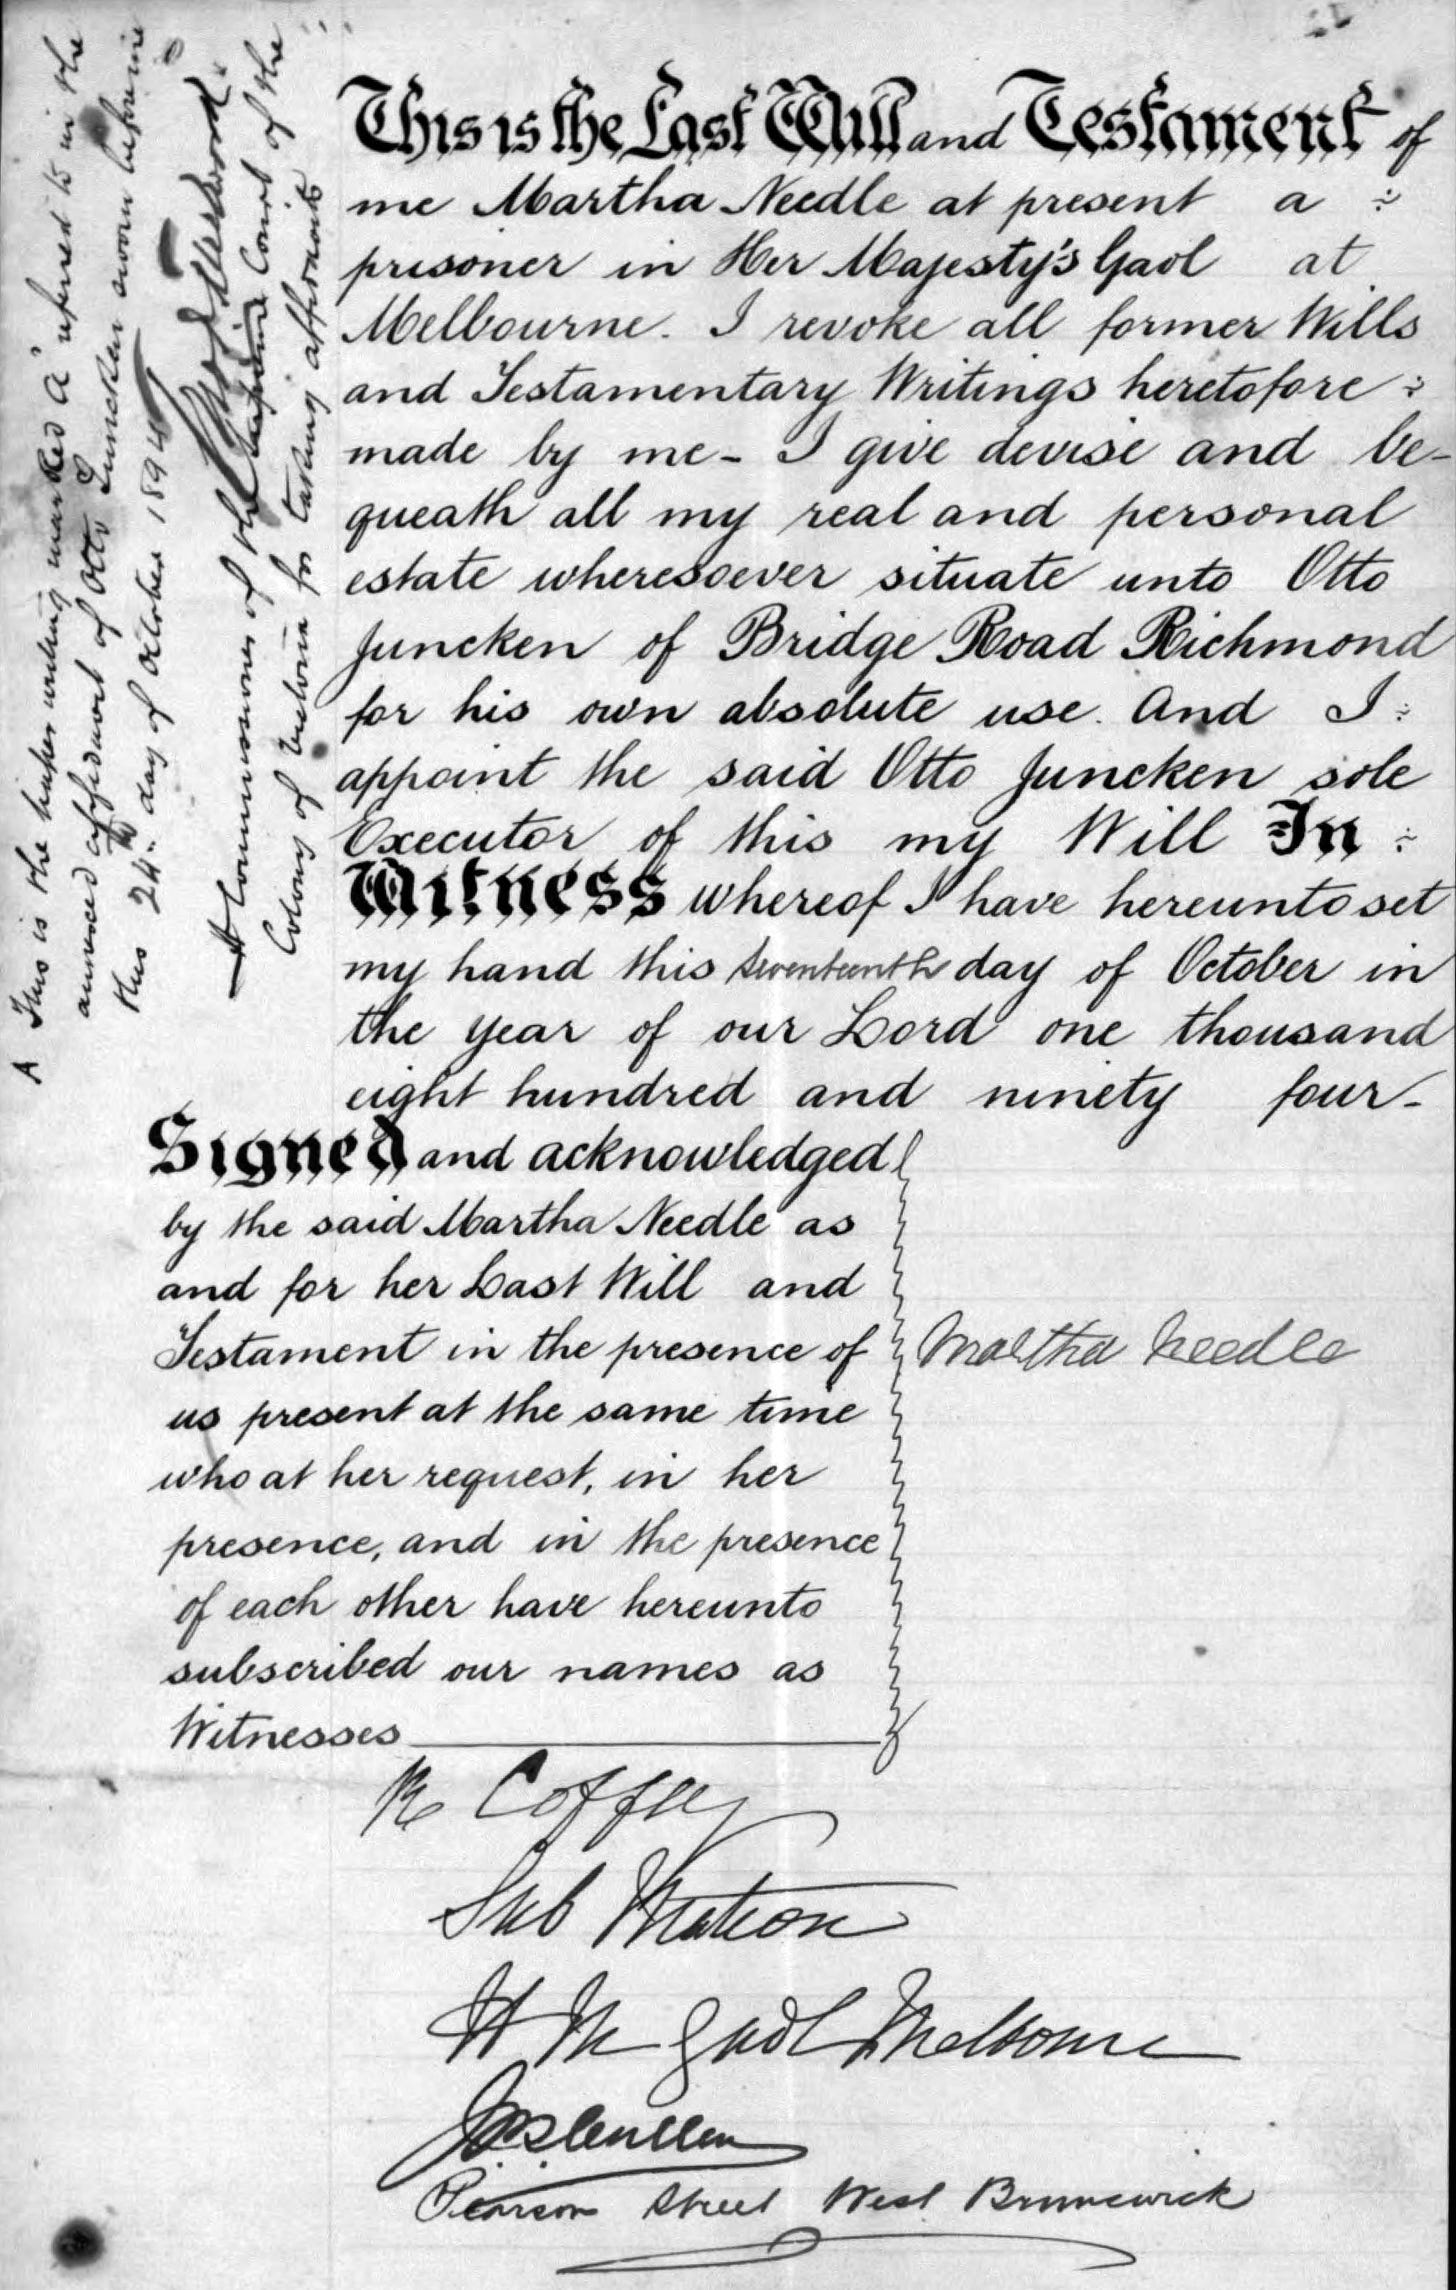 This is the Last Will and Testament of
me Martha Needle at present a
prisoner in Her Majesty's Gaol at
Melbourne. I revoke all former Wills
and Testamentary Writings heretofore
made by me - I give devise and be-
queath all my real and personal
estate wheresoever situate unto Otto
Juncken of Bridge Road Richmond
for his own absolute use. And I
appoint the said Otto Juncken sole
Executor of this my Will In
Witness whereof I have hereunto set
my hand this seventeenth day of October in
the year of our Lord one thousand
eight hundred and ninety four-
Signed and acknowledged
by the said Martha Needle as
and for her Last Will and
Testament in the presence of
us present at the same time
who at her request, in her
presence, and in the presence
of each other have hereunto
subscribed our names as
Witnesses
Martha Needle
Coffey
Sub Matron
H M Gaol Melbourne
Cullen
Pearson Street West Brunswick
A This is the paper writing marked "A" referred to in the
annexed affidavit of Otto Juncken sworn before me
this 24th day of October 1894
A Commissioner of the Supreme Court of the
Colony of Victoria for taking affidavits